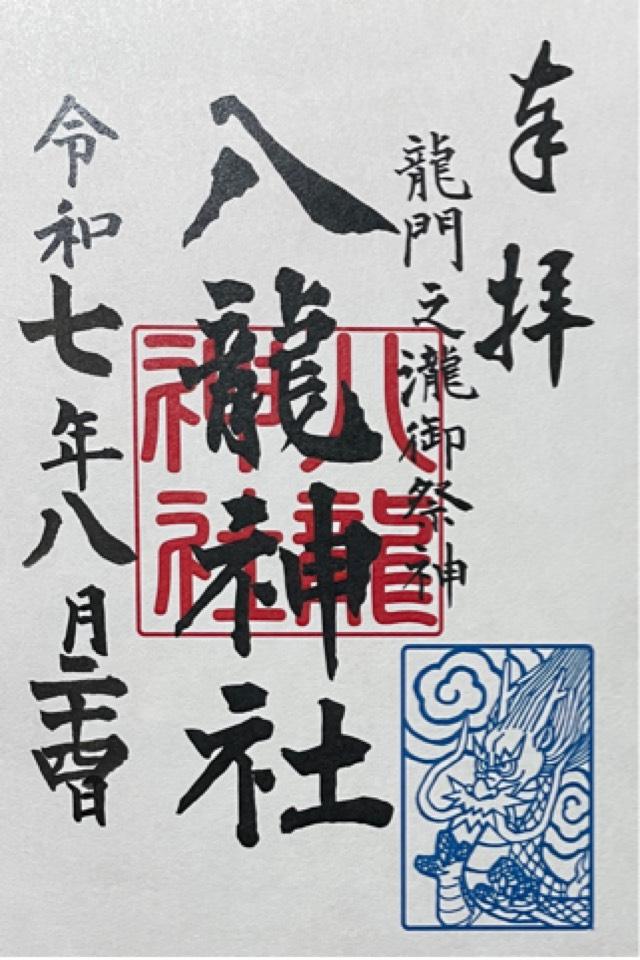 奉拝
龍門之瀧御祭神
八龍神社
八龍
神社
令和七年八月二十四日